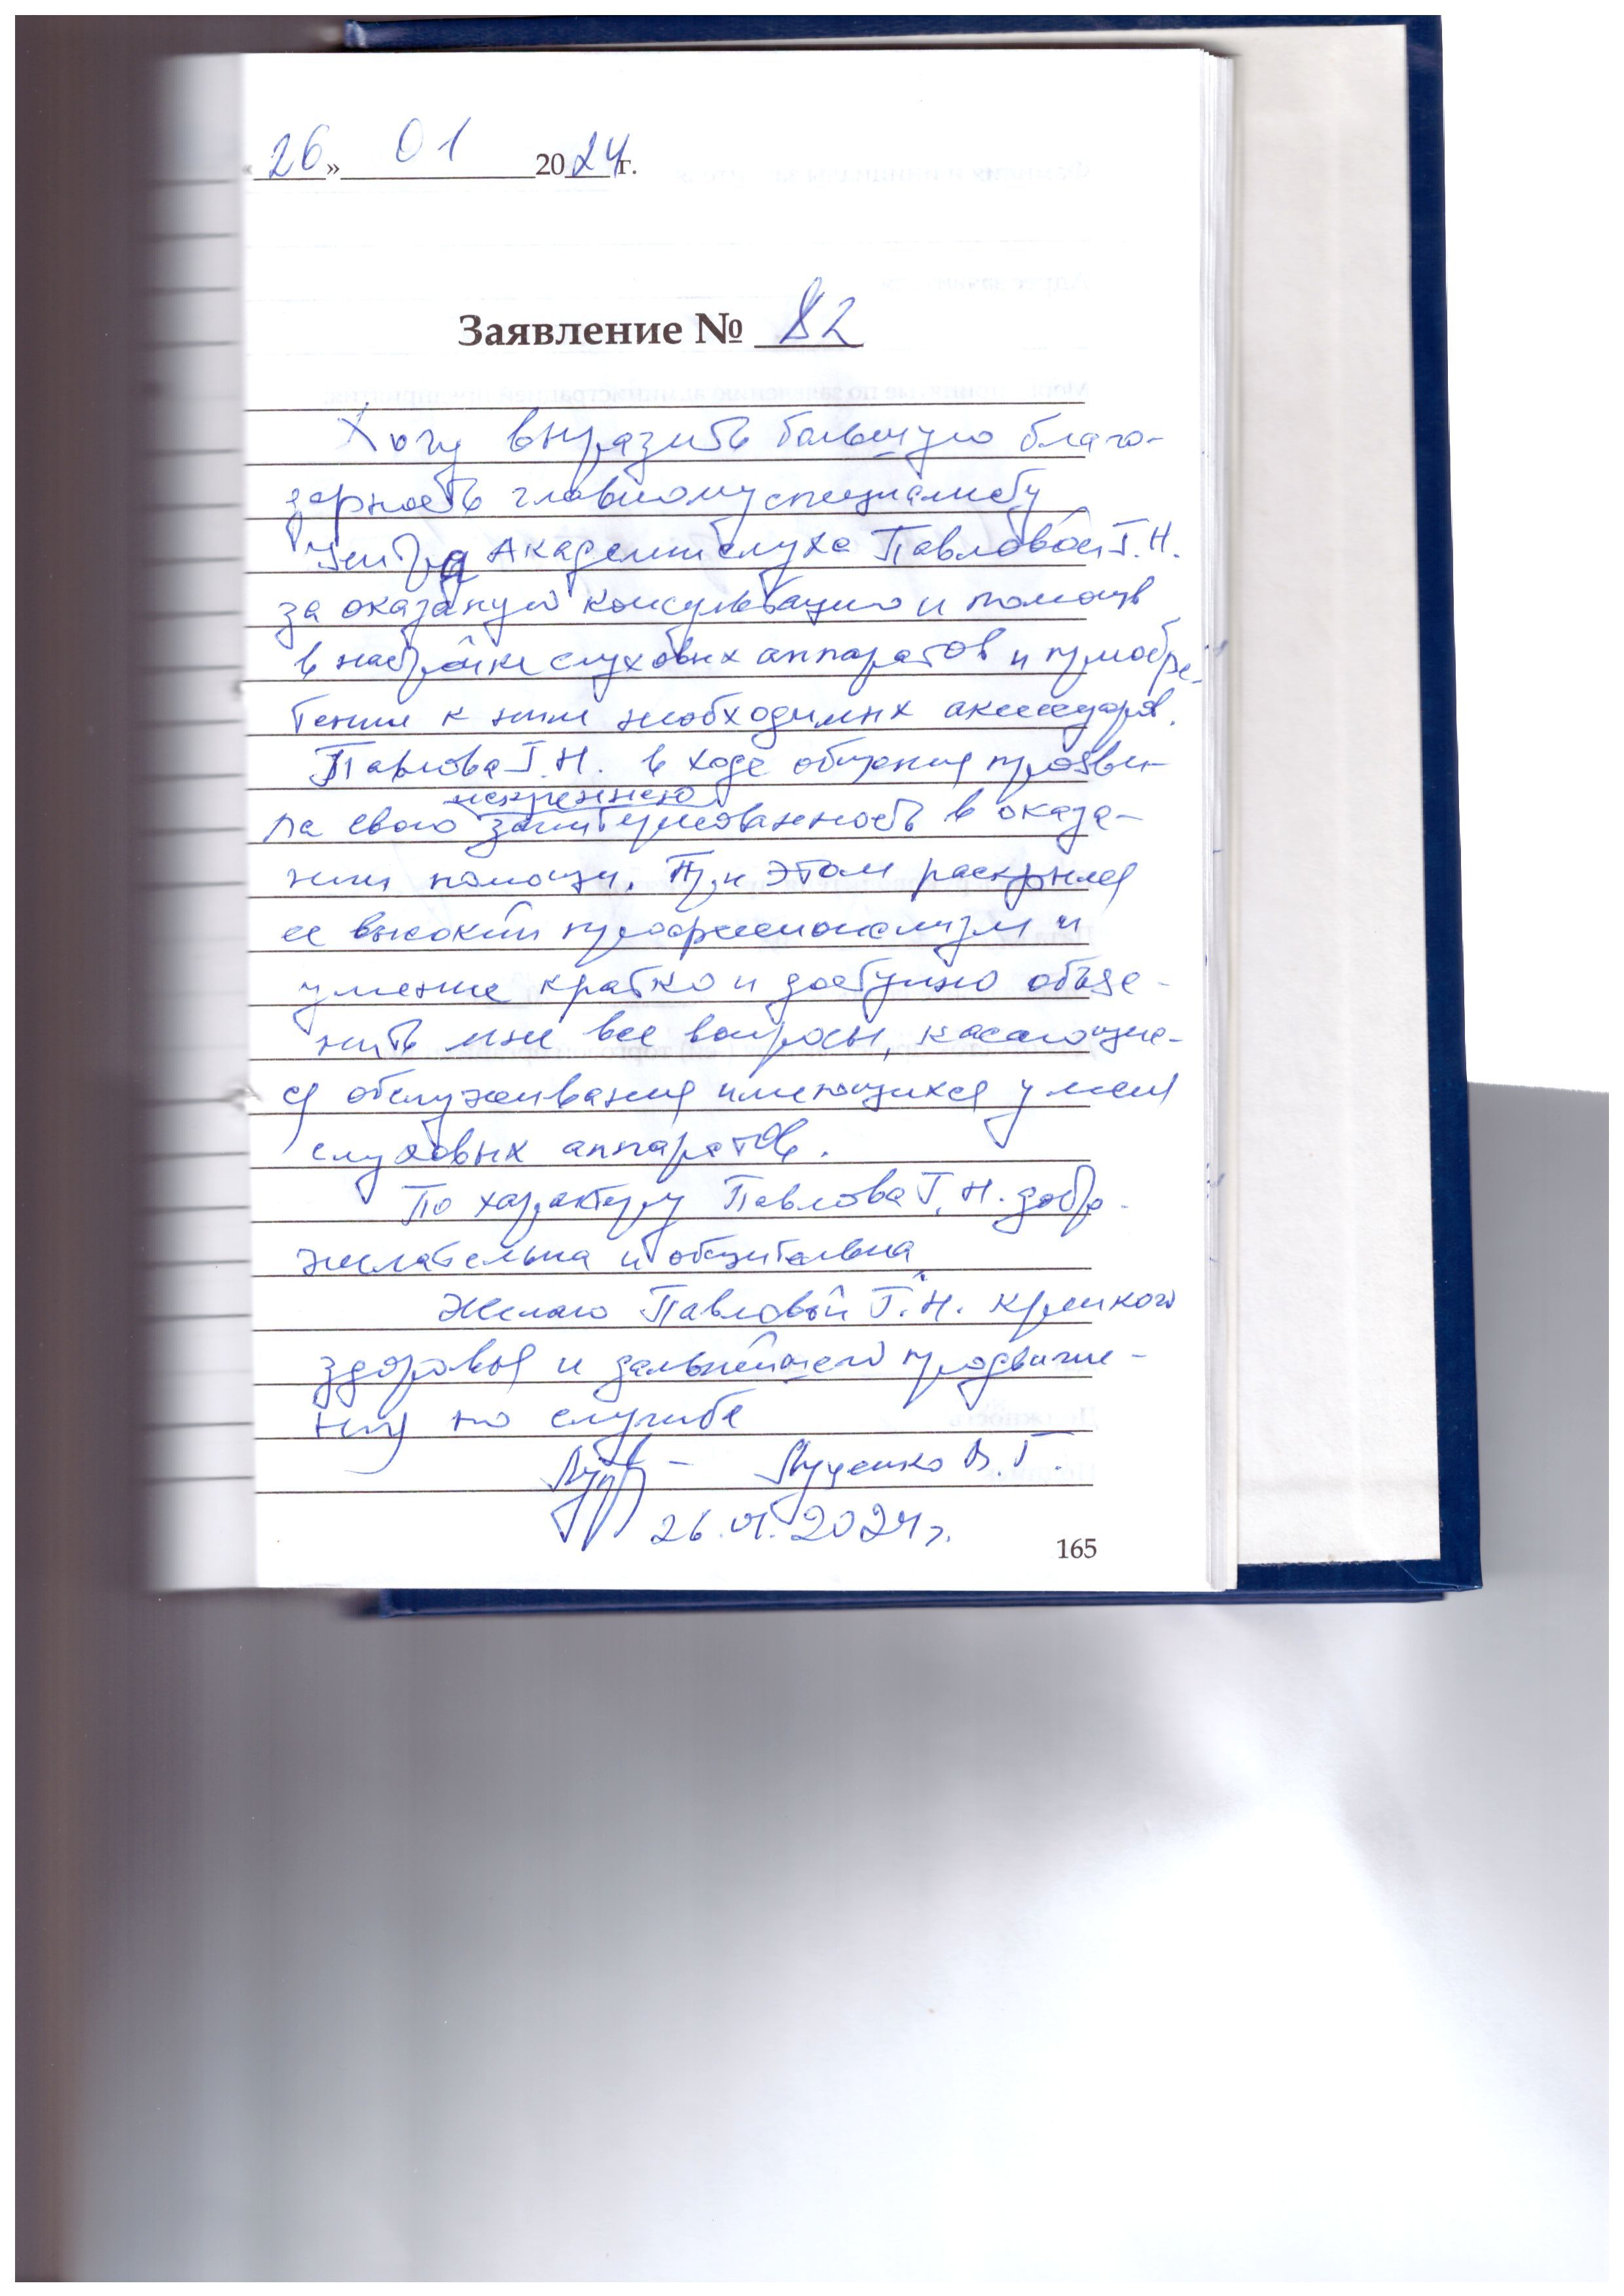 «26» 01 2024г.
Заявление № 82
Хочу выразить большую благо-
дарность главному специалисту
Центра Академии слуха Павловой Г.Н.
за оказаную консультацию и помощь
в настройке слуховых аппаратов и приобре-
тении к ним необходимых аксесуаров.
Павлова Г.Н. в ходе общения прояви-
искреннею
ла свою заинтересованность в оказа-
нии помощи. При этом раскрылся
ее высокий профессионализм и
умение кратко и доступно объяс-
нить мне все вопросы, касающие-
ся обслуживания имеющихся у меня
слуховых аппаратов.
По характеру Павлова Г.Н. добро-
желательна и общительна
Желаю Павловой Г.Н. крепкого
здоровья и дальнейшего продвиже-
ния по службе
Луценко В.Г.
26.01.2024г.
165